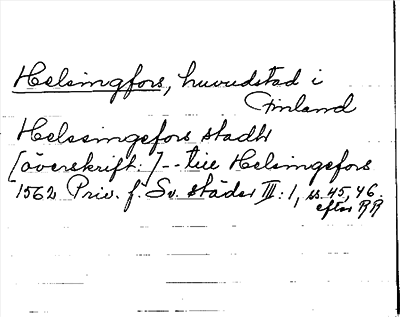 Helsingfors, huvudstad i
Finland
Helssingefors stadh
[överskrift:]-- till Helsingefors
1562 Priv. f. Sv. städer III:1, ss. 45, 46.
efter RR